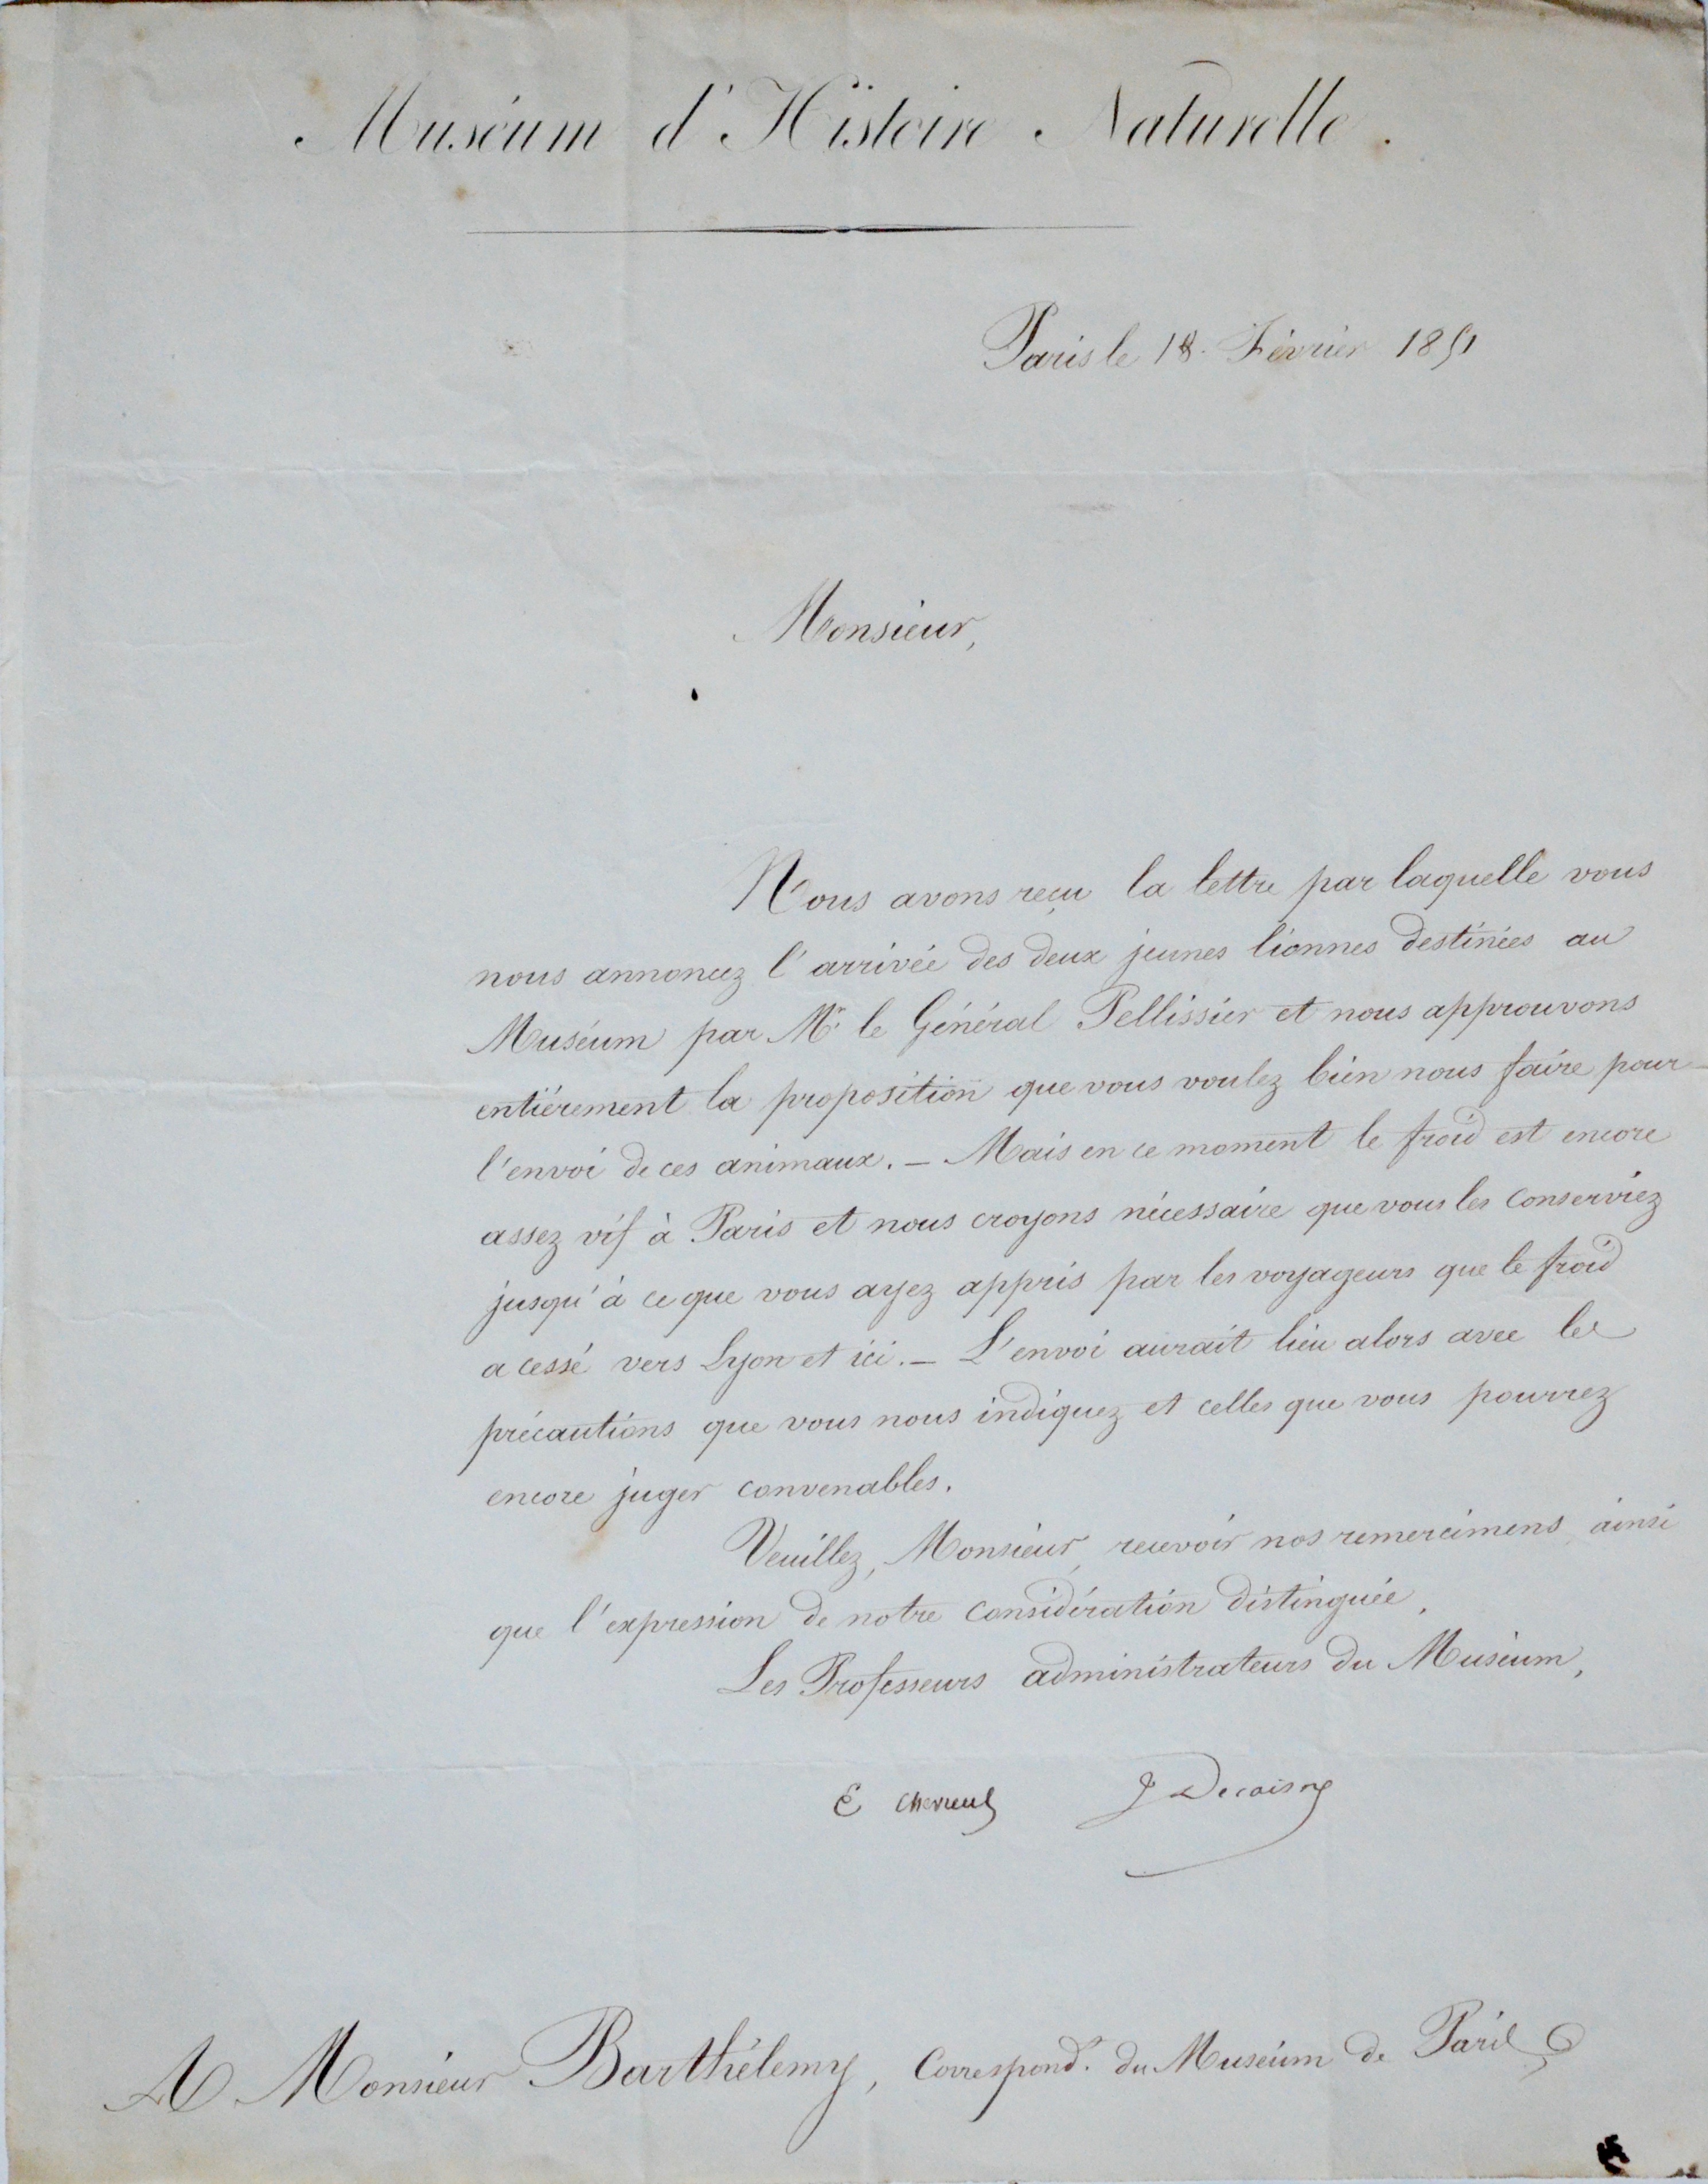 Muséum d'Histoire Naturelle.
Paris le 18. Février 1851
Monsieur,
Nous avons reçu la lettre par laquelle vous
nous annoncez l'arrivée des deux jeunes lionnes destinées au
Muséum par Mr. le Général Pellissier et nous approuvons
entiérement la proposition que vous voulez bien nous faire pour
l'envoi de ces animaux. _ Mais en ce moment le froid est encore
assez vif à Paris et nous croyons nécessaire que vous les conserviez
jusqu'à ce que vous ayez appris par les voyageurs que le froid
a cessé vers Lyon et ici. _ L'envoi aurait lieu alors avec les
précautions que vous nous indiquez et celles que vous pourrez
encore juger convenables.
Veuillez, Monsieur, recevoir nos remercimens ainsi
que l'expression de notre considération distinguée.
Les Professeurs administrateurs du Muséum,
E Chevreul J Decaisne
A Monsieur Barthélemy, Correspond.t du Muséum de Paris